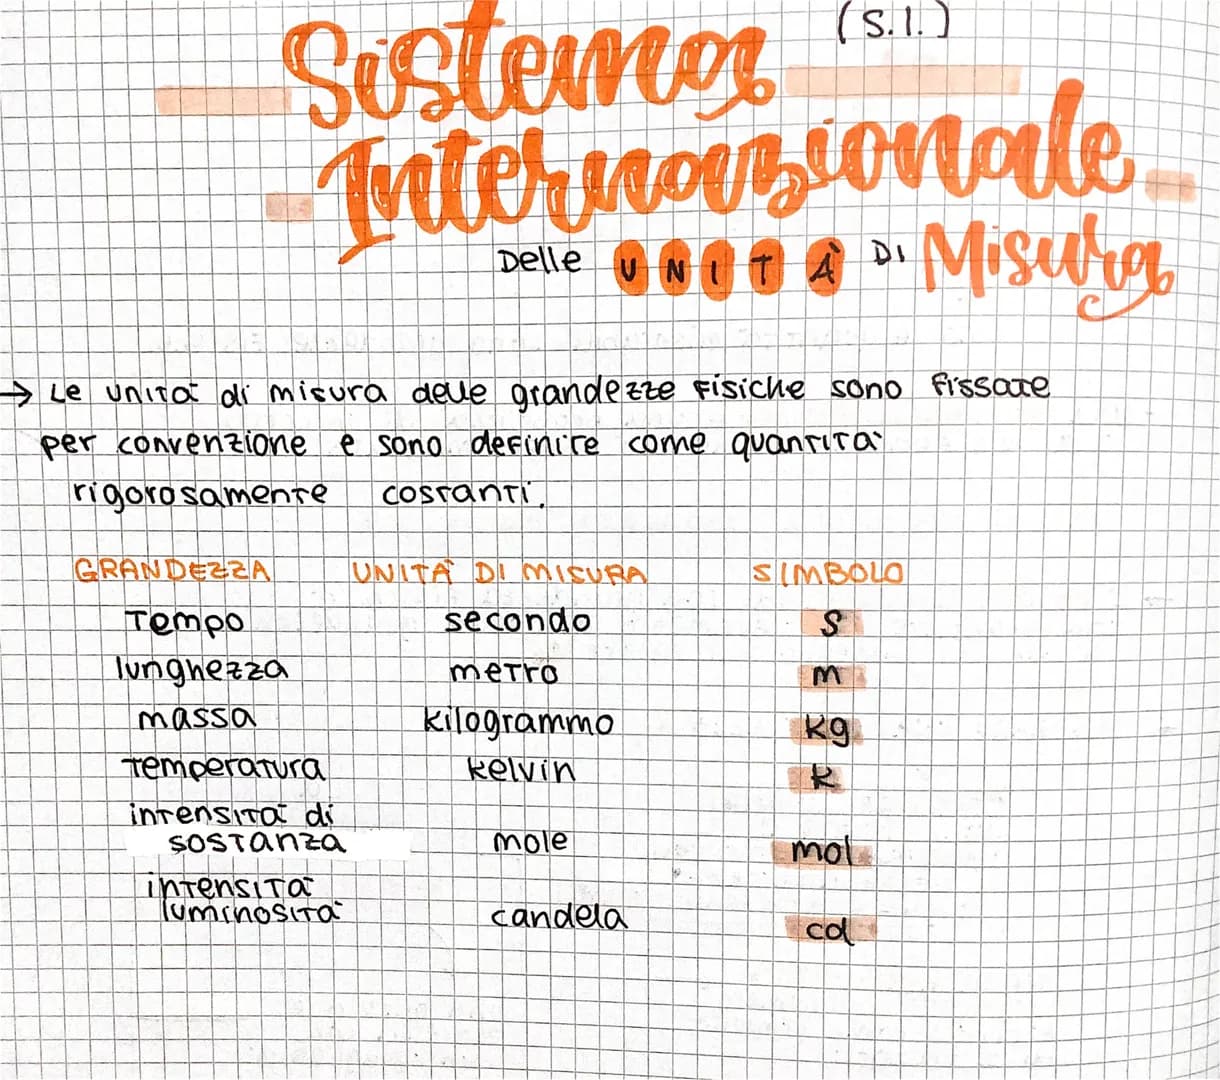 (S.I.)
Sistema
Internazionale
Delle UNITÀ DI Misura
→ Le unità di misura delle grandezze fisiche sono fissate
per convenzione e sono definite come quantità
rigorosamente costanti.
GRANDEZZA UNITÀ DI MISURA SIMBOLO
Tempo secondo s
lunghezza metro m
massa kilogrammo kg
temperatura kelvin k
intensità di
sostanza mole mol
intensità
luminosità candela cd